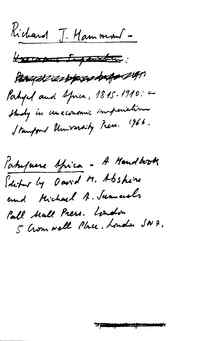 Richard J. Hammond -
Portugal and Africa, 1815-1910: a
study in uneconomic imperialism
Stanford University Press. 1966.
Portuguese Africa - A Handbook
Edited by David M. Abshire
and Michael A. Samuels
Pall Mall Press. London
5 Cromwell Place. London SW7.